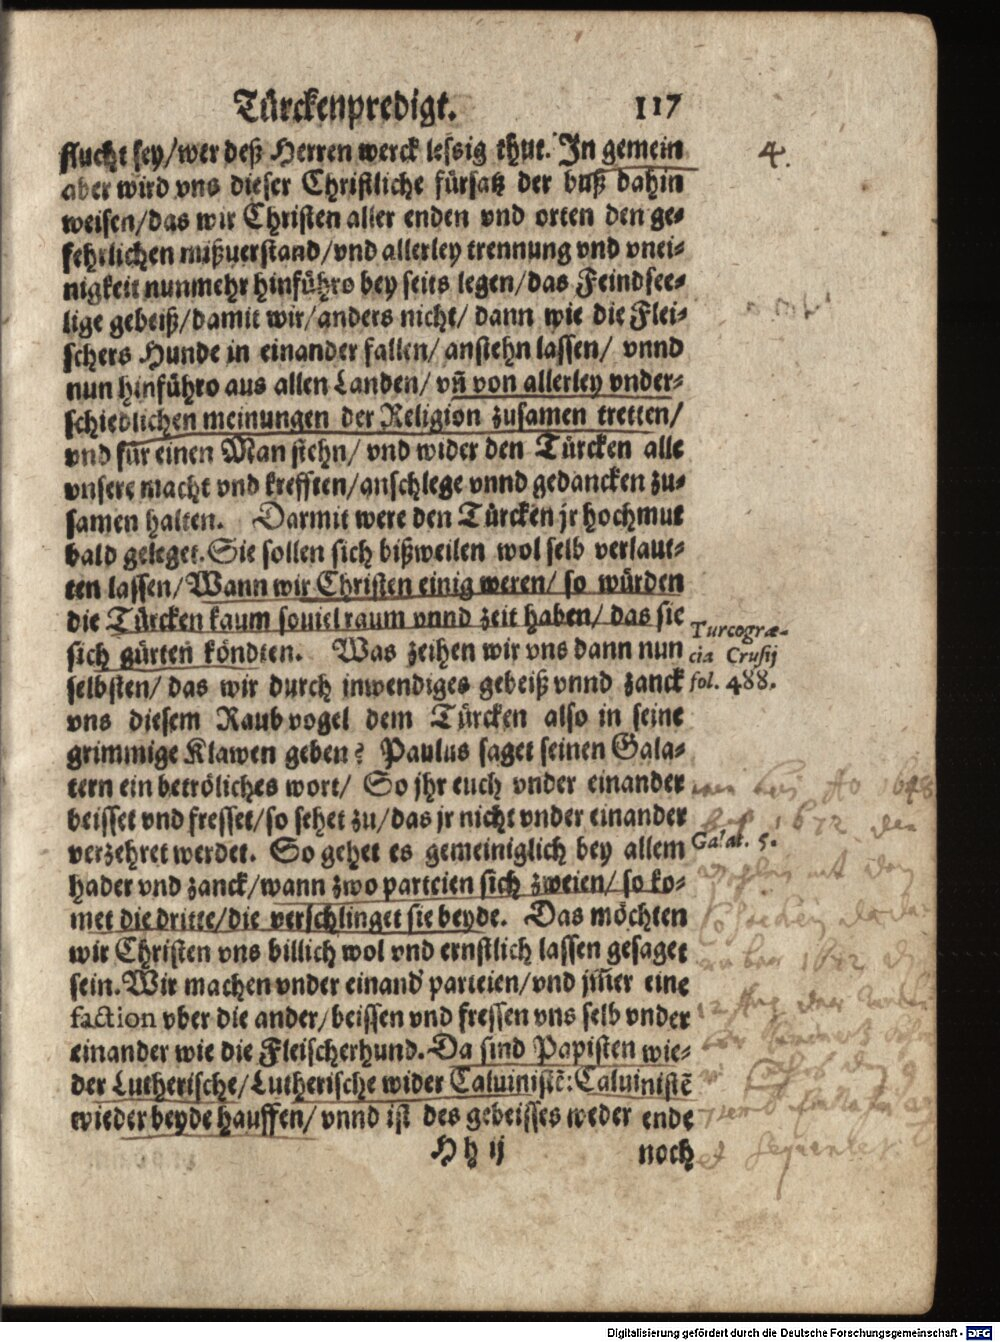 Türckenpredigt. 117
flucht sey/wer deß Herren werck lessig thut. In gemein
4.
aber wird vns dieser Christliche fürsatz der buß dahin
weisen/das wir Christen aller enden vnd orten den ge-
fehrlichen mißuerstand/vnd allerley trennung vnd vnei-
nigkeit nunmehr hinführo bey seits legen/das Feindsee-
lige gebeiß/damit wir/anders nicht/ dann wie die Flei-
schers Hunde in einander fallen/ anstehn lassen/ vnnd
nun hinführo aus allen Landen/ vñ von allerley vnder-
schiedlichen meinungen der Religion zusamen tretten/
vnd für einen Man stehn/ vnd wider den Türcken alle
vnsere macht vnd krefften/anschlege vnnd gedancken zu-
samen halten. Darmit were den Türcken jr hochmut
bald geleget. Sie sollen sich bißweilen wol selb verlaut-
ten lassen/Wann wir Christen einig weren/ so würden
die Türcken kaum souiel raum vnnd zeit haben/ das sie
sich gürten köndten. Was zeihen wir vns dann nun
selbsten/ das wir durch inwendiges gebeiß vnnd zanck
Turcogræ-
cia Crusij
fol. 488.
vns diesem Raubvogel dem Türcken also in seine
grimmige Klawen geben? Paulus saget seinen Gala-
tern ein betröliches wort/ So jhr euch vnder einander
beisset vnd fresset/so sehet zu/das jr nicht vnder einander
verzehret werdet. So gehet es gemeiniglich bey allem
Galat. 5.
hader vnd zanck/wann zwo parteien sich zweien/ so ko-
met die dritte/die verschlinget sie beyde. Das möchten
wir Christen vns billich wol vnd ernstlich lassen gesaget
sein. Wir machen vnder einand' parteien/vnd jm̃er eine
faction vber die ander/beissen vnd fressen vns selb vnder
einander wie die Fleischerhund. Da sind Papisten wie-
der Lutherische/Lutherische wider Caluinistẽ: Caluinistẽ
wieder beyde hauffen/ vnnd ist des gebeisses weder ende
Hh ij noch
1648
1672
et sequentes
Digitalisierung gefördert durch die Deutsche Forschungsgemeinschaft - DFG